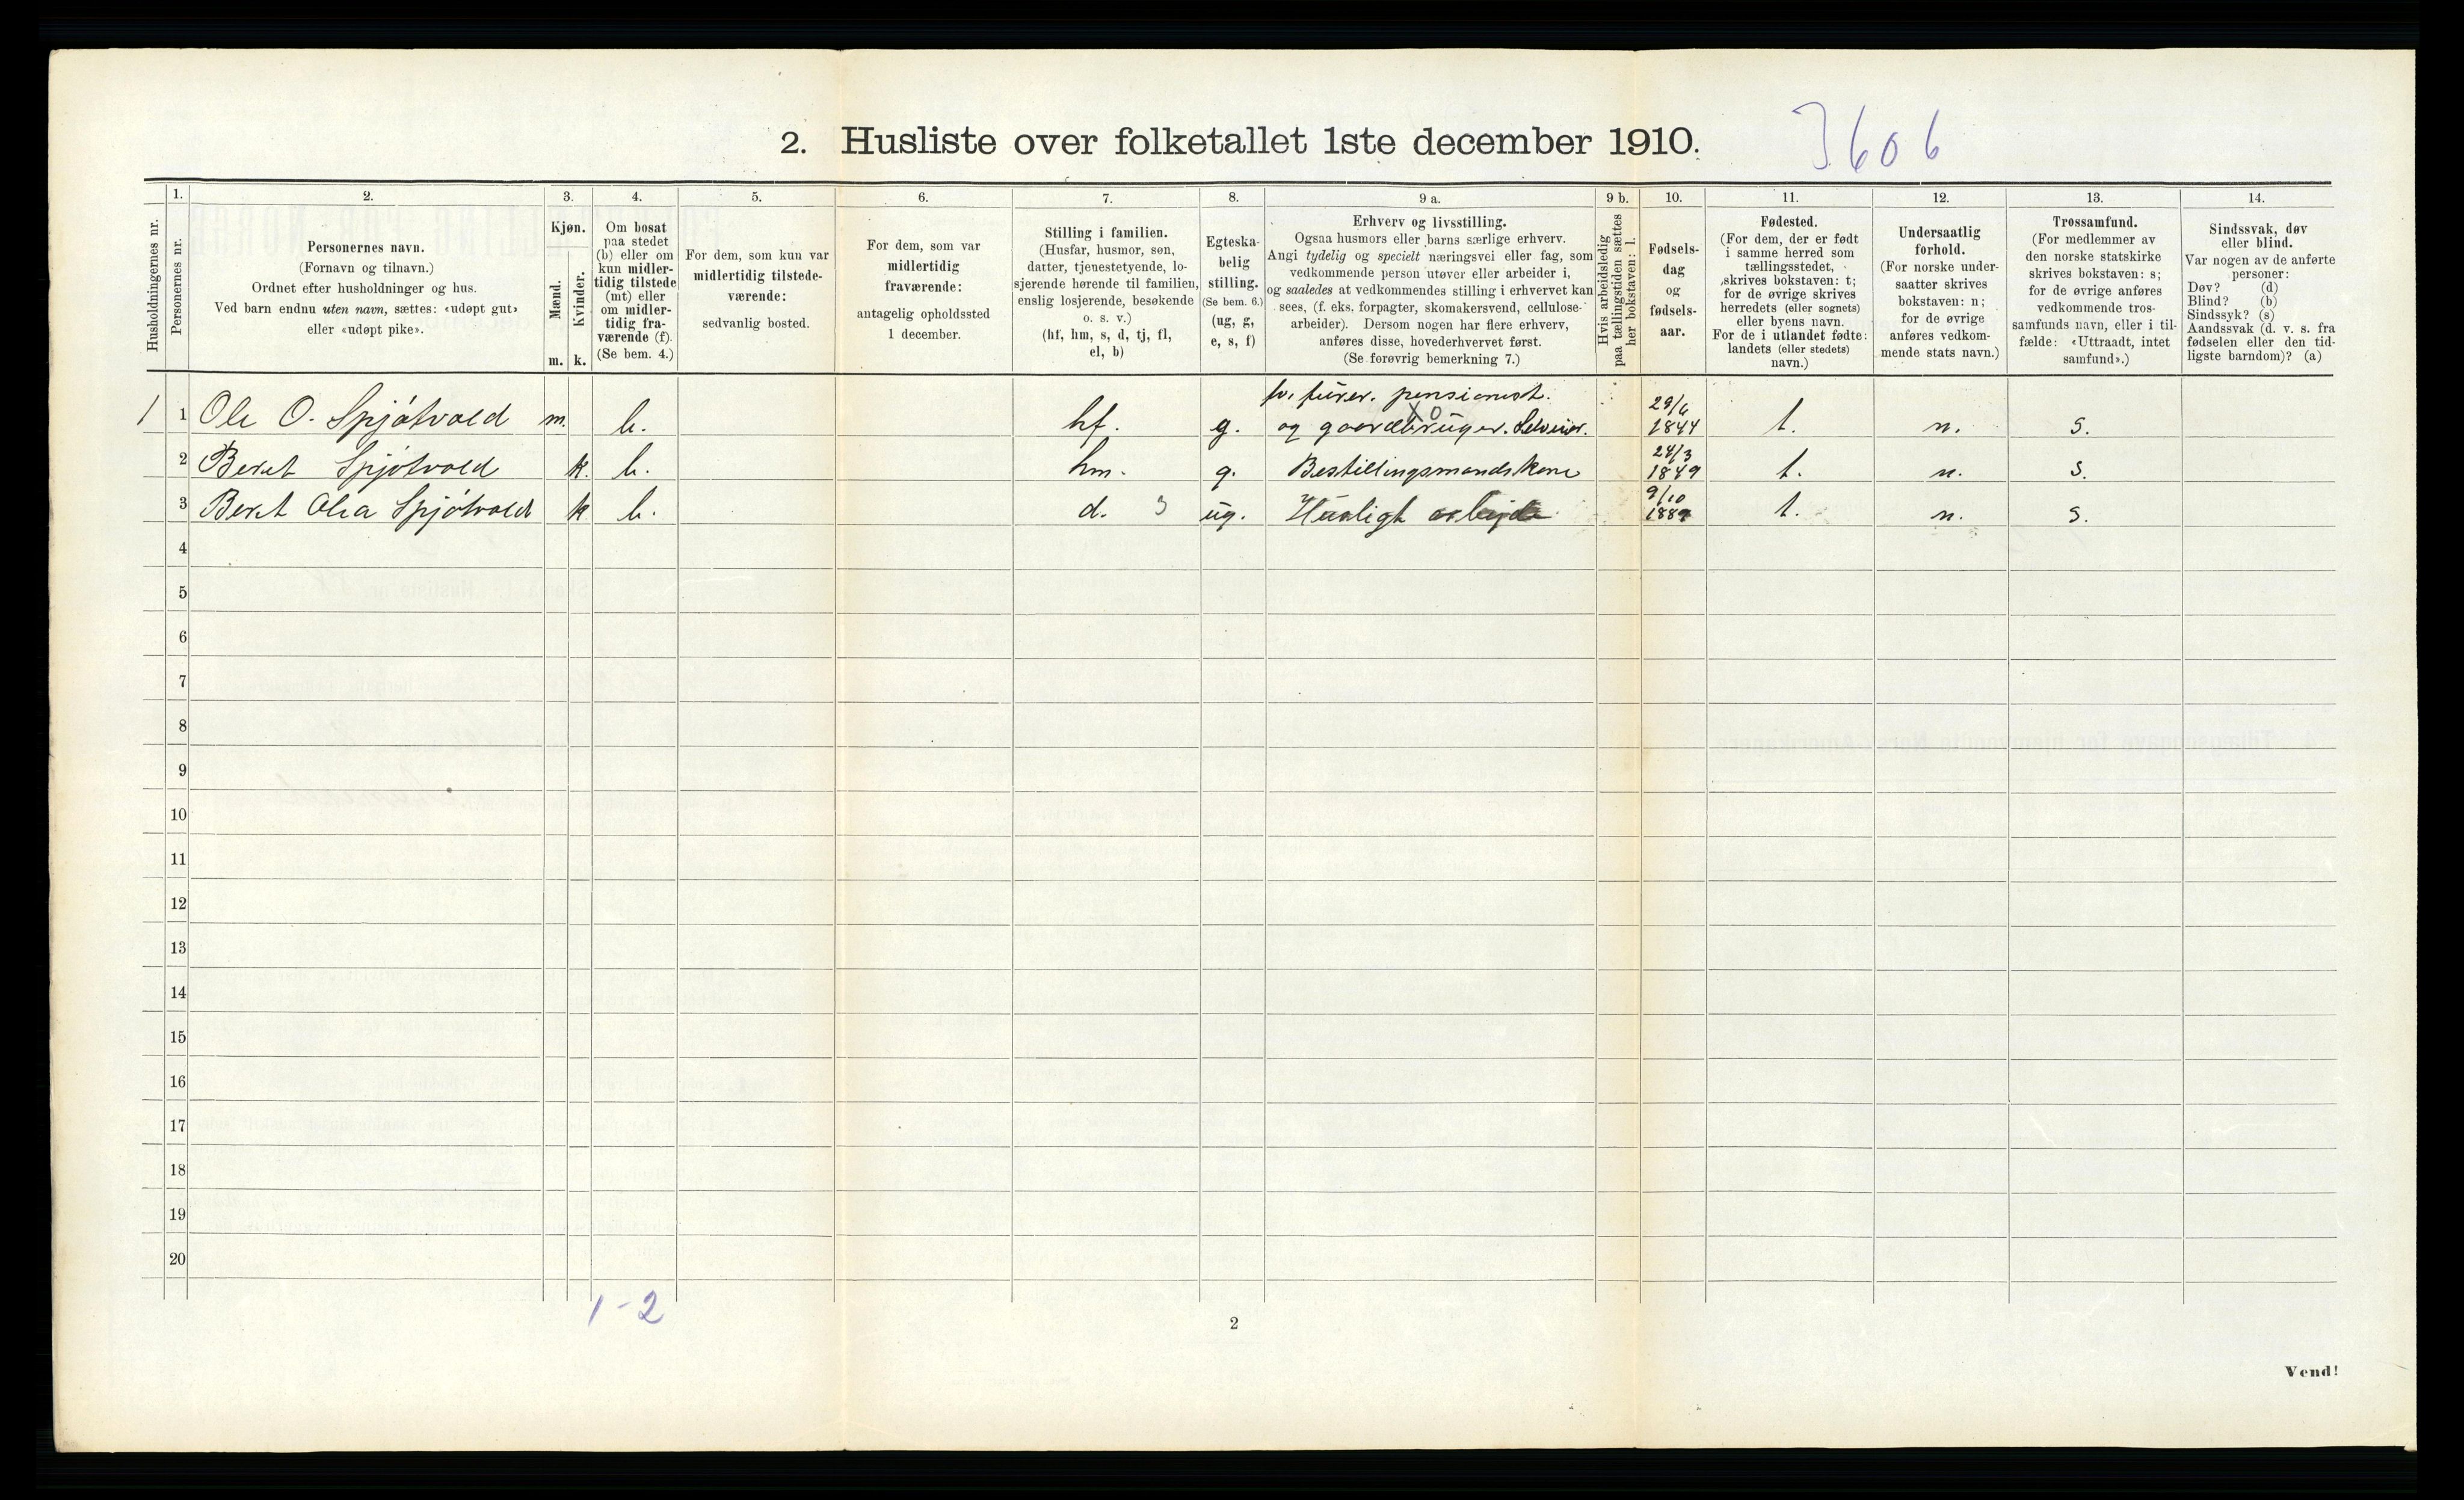 2. Husliste over folketallet 1ste december 1910.
3606
Husholdningernes nr.
1.
Personernes nr.
2.
Personernes navn.
(Fornavn og tilnavn.)
Ordnet efter husholdninger og hus.
Ved barn endnu uten navn, sættes: «udøpt gut»
eller «udøpt pike».
3.
Kjøn.
Mænd.
Kvinder.
m. k.
4.
Om bosat
paa stedet
(b) eller om
kun midler-
tidig tilstede
(mt) eller
om midler-
tidig fra-
værende (f).
(Se bem. 4.)
5.
For dem, som kun var
midlertidig tilstede-
værende:
sedvanlig bosted.
6.
For dem, som var
midlertidig
fraværende:
antagelig opholdssted
1 december.
7.
Stilling i familien.
(Husfar, husmor, søn,
datter, tjenestetyende, lo-
sjerende hørende til familien,
enslig losjerende, besøkende
o. s. v.)
(hf, hm, s, d, tj, fl,
el, b)
8.
Egteska-
belig
stilling.
(Se bem. 6.)
(ug, g,
e, s, f)
9 a.
Erhverv og livsstilling.
Ogsaa husmors eller barns særlige erhverv.
Angi tydelig og specielt næringsvei eller fag, som
vedkommende person utøver eller arbeider i,
og saaledes at vedkommendes stilling i erhvervet kan
sees, (f. eks. forpagter, skomakersvend, cellulose-
arbeider). Dersom nogen har flere erhverv,
anføres disse, hovederhvervet først.
(Se forøvrig bemerkning 7.)
9 b.
Hvis arbeidsledig
paa tællingstiden sættes
her bokstaven: l.
10.
Fødsels-
dag
og
fødsels-
aar.
11.
Fødested.
(For dem, der er født
i samme herred som
tællingsstedet,
skrives bokstaven: t;
for de øvrige skrives
herredets (eller sognets)
eller byens navn.
For de i utlandet fødte:
landets (eller stedets)
navn.)
12.
Undersaatlig
forhold.
(For norske under-
saatter skrives
bokstaven: n;
for de øvrige
anføres vedkom-
mende stats navn.)
13.
Trossamfund.
(For medlemmer av
den norske statskirke
skrives bokstaven: s;
for de øvrige anføres
vedkommende tros-
samfunds navn, eller i til-
fælde: «Uttraadt, intet
samfund».)
14.
Sindssvak, døv
eller blind.
Var nogen av de anførte
personer:
Døv? (d)
Blind? (b)
Sindssyk? (s)
Aandssvak (d. v. s. fra
fødselen eller den tid-
ligste barndom)? (a)
fv. furer. pensionist.
X0
1 1 Ole O. Spjøtvold m. b. hf. g. og gaardbruger. Selveier. 29/6 1844 t. n. s.
2 Beret Spjøtvold k. b. hm. g. Bestillingsmandskone 24/3 1849 t. n. s.
3 Beret Olea Spjøtvold k b. d. 3 ug. Husligt arbejde 9/10 1889 t. n. s.
4
5
6
7
8
9
10
11
12
13
14
15
16
17
18
19
20
1-2
2
Vend!